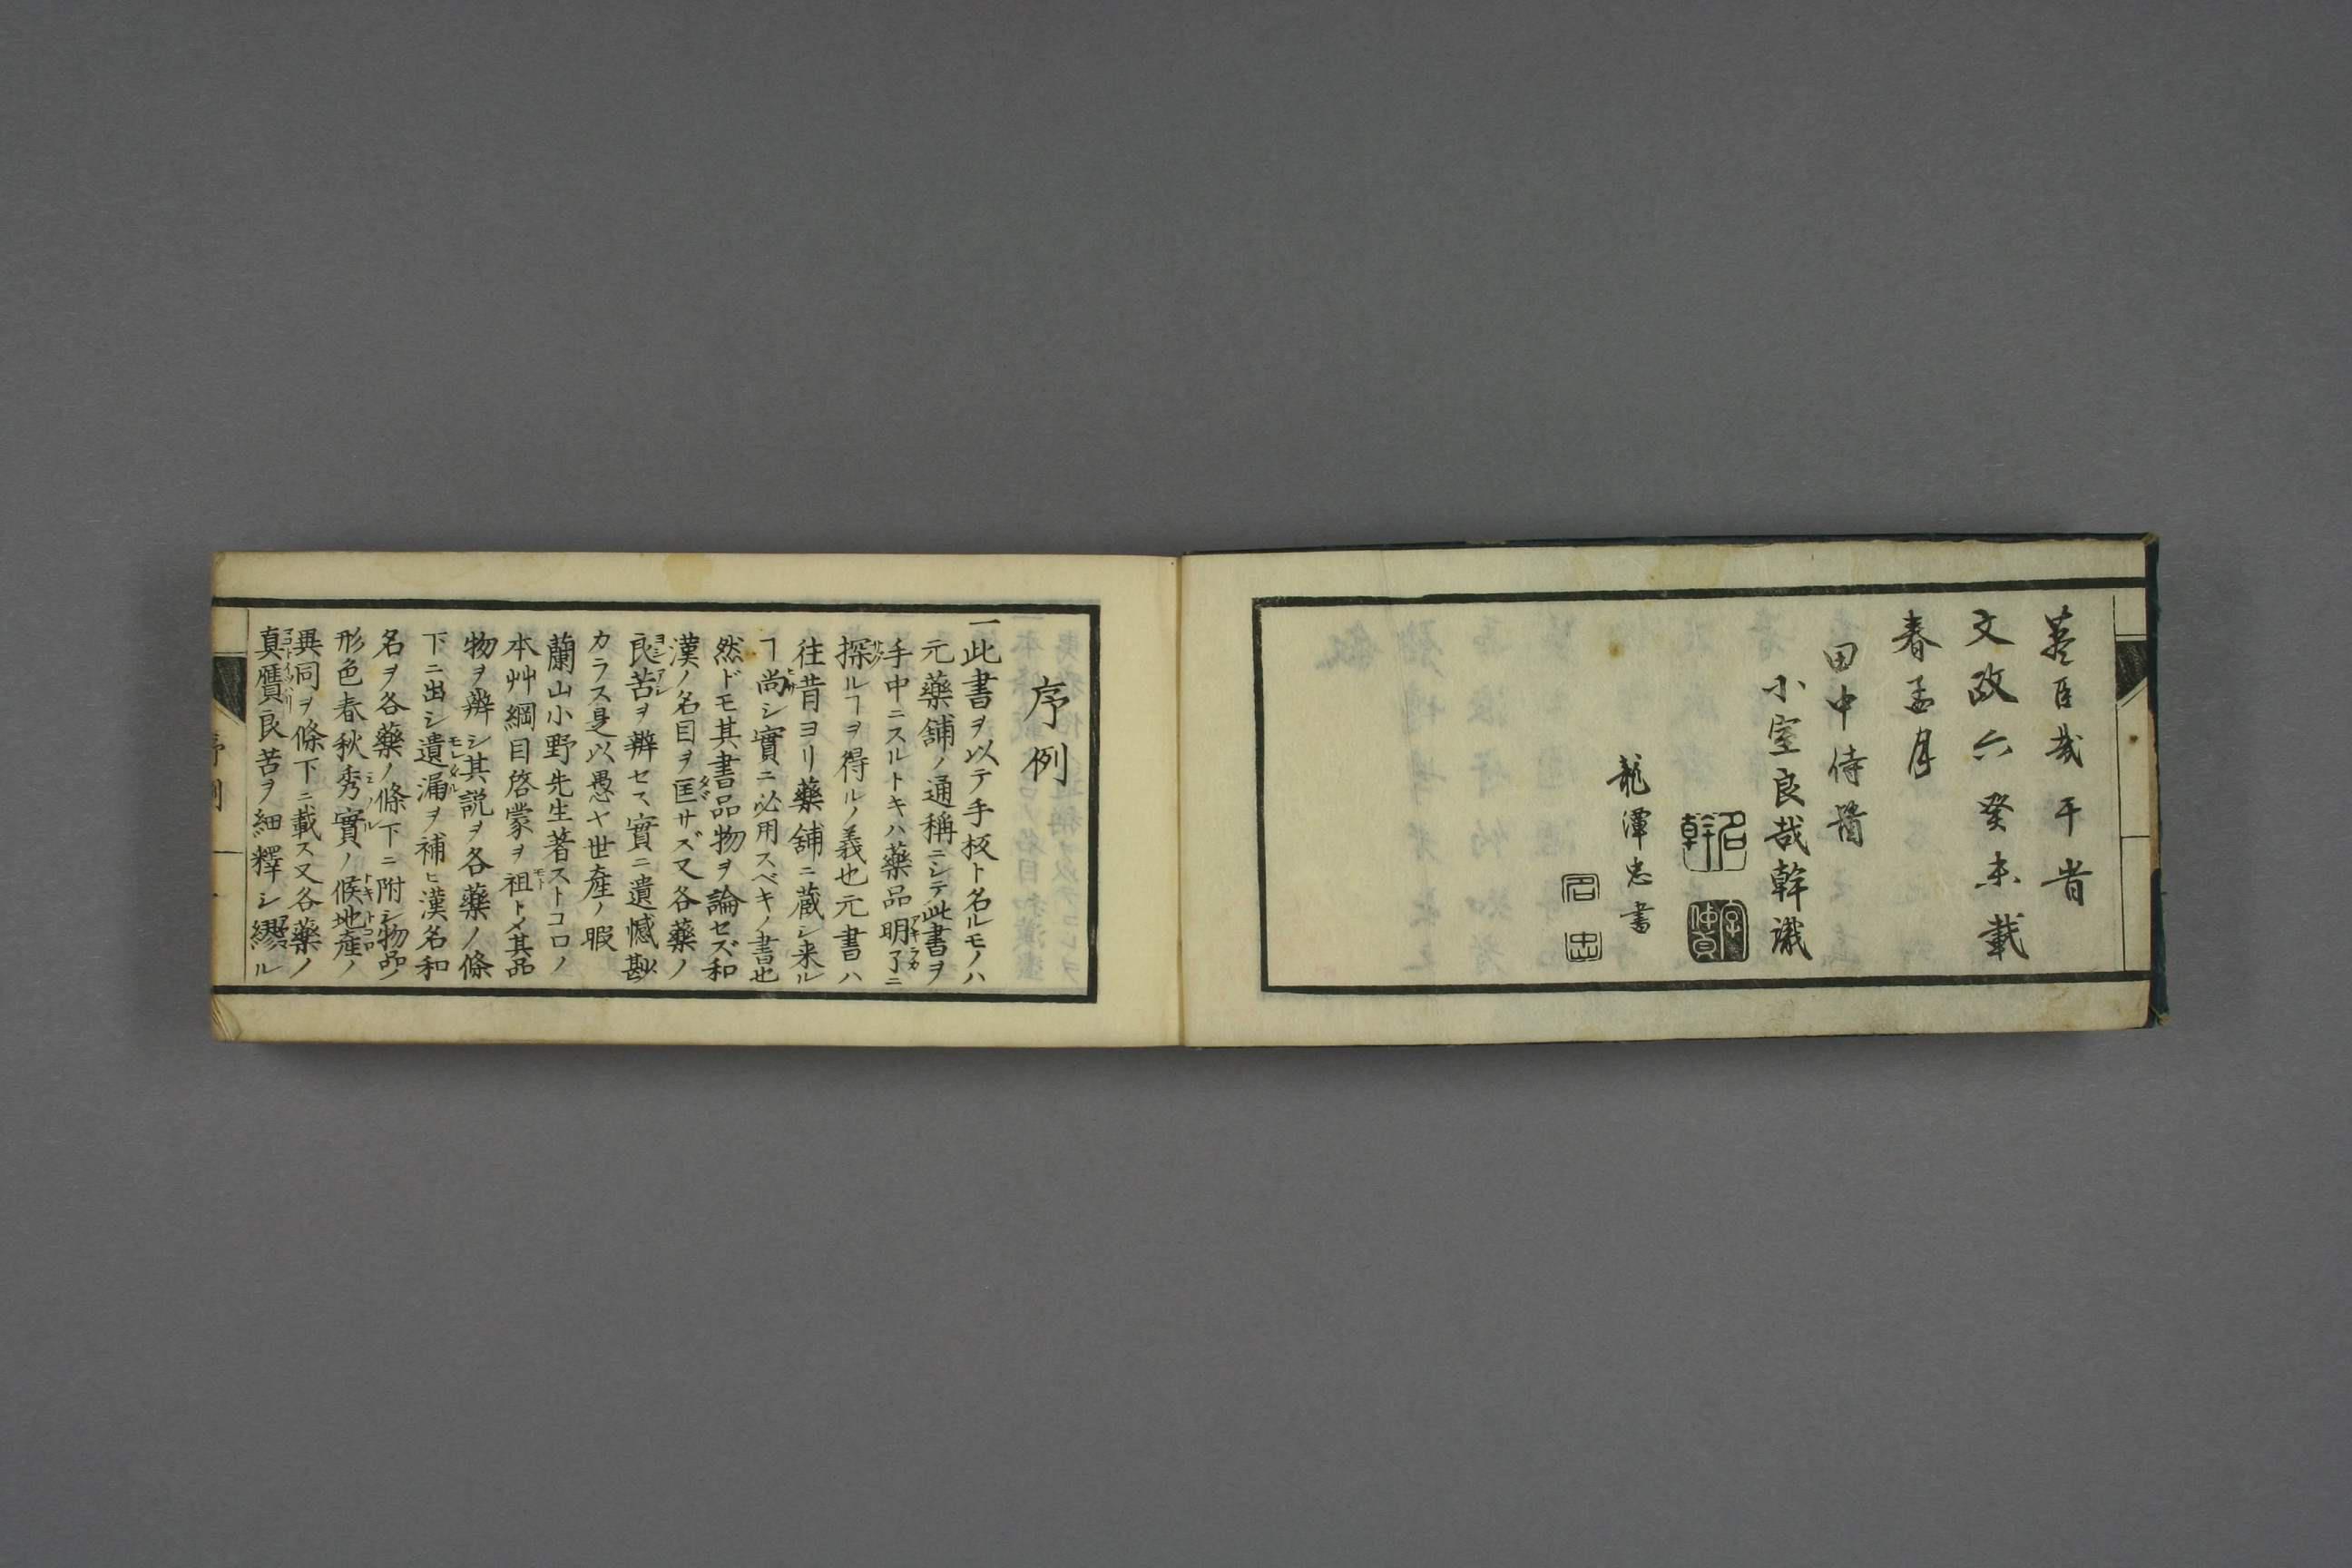 文政六癸未載
春孟月
田中侍醫
小室良哉幹識
名幹
字仲貞
龍潭忠書
序例
一此書ヲ以テ手板ト名ルモノハ
元藥舗ノ通稱ニシテ此書ヲ
手中ニスルトキハ藥品明了ニ
探ルヿヲ得ルノ義也元書ハ
往昔ヨリ藥舗ニ蔵シ来ル
ヿ尚シ實ニ必用スベキノ書也
然ドモ其書品物ヲ論セズ和
漢ノ名目ヲ匡サズ又各藥ノ
良苦ヲ辨セス實ニ遺憾尠
カラス是以愚ヤ世産ノ暇
蘭山小野先生著ストコロノ
本艸綱目啓蒙ヲ祖トメ其品
物ヲ辨シ其説ヲ各藥ノ條
下ニ出シ遺漏ヲ補ヒ漢名和
名ヲ各藥ノ條下ニ附シ物品ノ
形色春秋秀實ノ候地産ノ
異同ヲ條下ニ載ス又各藥ノ
真贋良苦ヲ細釋シ繆ル
序例